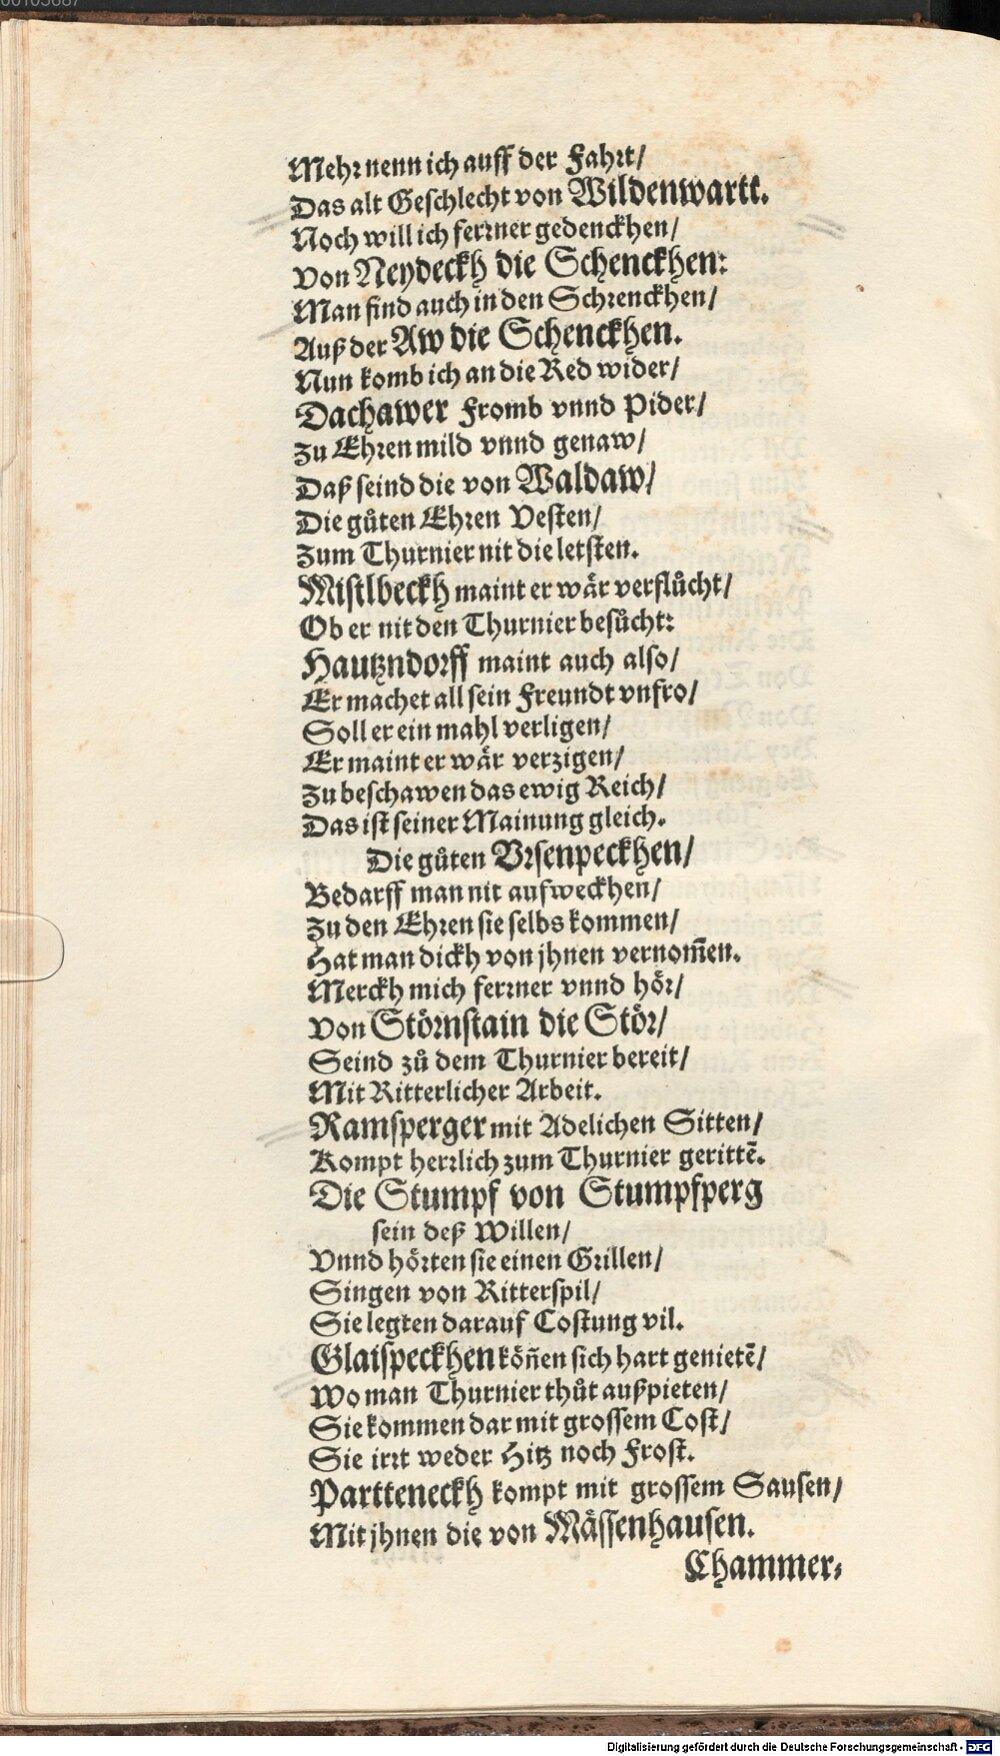 Mehr nenn ich auff der Fahrt/
Das alt Geschlecht von Wildenwartt.
Noch will ich ferrner gedenckhen/
Von Neydeckh die Schenckhen:
Man find auch in den Schrenckhen/
Auß der Aw die Schenckhen.
Nun komb ich an die Red wider/
Dachawer Fromb vnnd Pider/
Zu Ehren mild vnnd genaw/
Daß seind die von Waldaw/
Die gůten Ehren Vesten/
Zum Thurnier nit die letsten.
Mistlbeckh maint er wär verflůcht/
Ob er nit den Thurnier besůcht:
Hautzndorff maint auch also/
Er machet all sein Freundt vnfro/
Soll er ein mahl verligen/
Er maint er wär verzigen/
Zu beschawen das ewig Reich/
Das ist seiner Mainung gleich.
Die gůten Vrsenpeckhen/
Bedarff man nit aufweckhen/
Zu den Ehren sie selbs kommen/
Hat man dickh von jhnen vernom̃en.
Merckh mich ferrner vnnd hör/
Von Störnstain die Stör/
Seind zů dem Thurnier bereit/
Mit Ritterlicher Arbeit.
Ramsperger mit Adelichen Sitten/
Kompt herrlich zum Thurnier gerittẽ.
Die Stumpf von Stumpfperg
sein deß Willen/
Vnnd hörten sie einen Grillen/
Singen von Ritterspil/
Sie legten darauf Costung vil.
Glaispeckhen köñen sich hart genietẽ/
Wo man Thurnier thůt außpieten/
Sie kommen dar mit grossem Cost/
Sie irrt weder Hitz noch Frost.
Partteneckh kompt mit grossem Sausen/
Mit jhnen die von Mässenhausen.
Chammer⸗
Digitalisierung gefördert durch die Deutsche Forschungsgemeinschaft - DFG